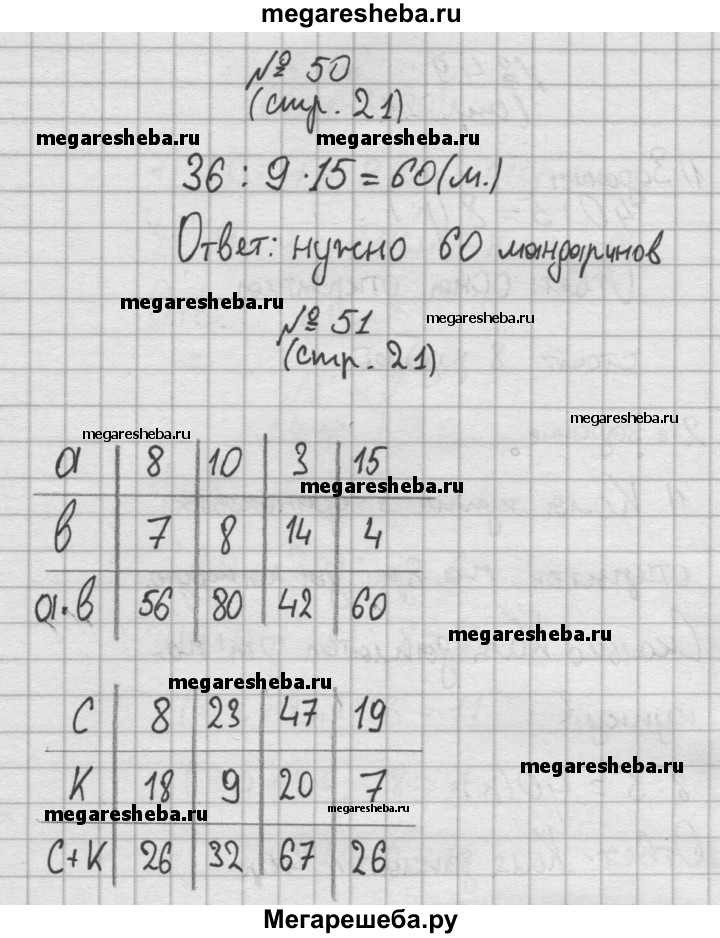 megaresheba.ru
№ 50
(стр. 21)
megaresheba.ru megaresheba.ru
36 : 9 · 15 = 60 (м.)
Ответ: нужно 60 мандаринов
megaresheba.ru
№ 51
megaresheba.ru
(стр. 21)
megaresheba.ru
megaresheba.ru
а 8 10 3 15
megaresheba.ru
в 7 8 14 4
а·в 56 80 42 60
megaresheba.ru
megaresheba.ru
С 8 23 47 19
megaresheba.ru
К 18 9 20 7
megaresheba.ru megaresheba.ru
С+К 26 32 67 26
Мегарешеба.ру